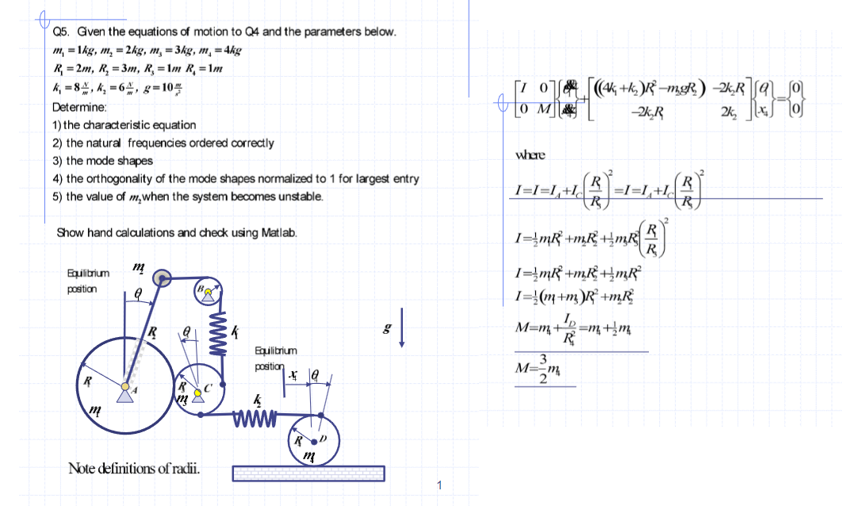 Q5. Given the equations of motion to Q4 and the parameters below.
m₁ = 1kg, m₂ = 2kg, m₃ = 3kg, m₄ = 4kg
R₁ = 2m, R₂ = 3m, R₃ = 1m R₄ = 1m
k₁ = 8 N/m, k₂ = 6 N/m, g = 10 m/s²
Determine:
1) the characteristic equation
2) the natural frequencies ordered correctly
3) the mode shapes
4) the orthogonality of the mode shapes normalized to 1 for largest entry
5) the value of m₂ when the system becomes unstable.
Show hand calculations and check using Matlab.
Equilibrium
position
m
θ
B
R
θ
k
g
Equilibrium
position
x
θ
R
A
R
C
m
m
k
R
D
m
Note definitions of radii.
1
[I 0; 0 M] + [((4k₁+k₂)R²−m₂gR₂) −2k₂R; −2k₂R 2k₂]{θ; x₄}={0; 0}
where
I=I=I_A+I_C(R/R)²=I=I_A+I_C(R/R)²
I=½mR²+mR²+½mR²(R/R)²
I=½mR²+mR²+½mR²
I=½(m+m₃)R²+mR²
M=m₄+I_D/R²=m₄+½m₄
M=3/2 m₄